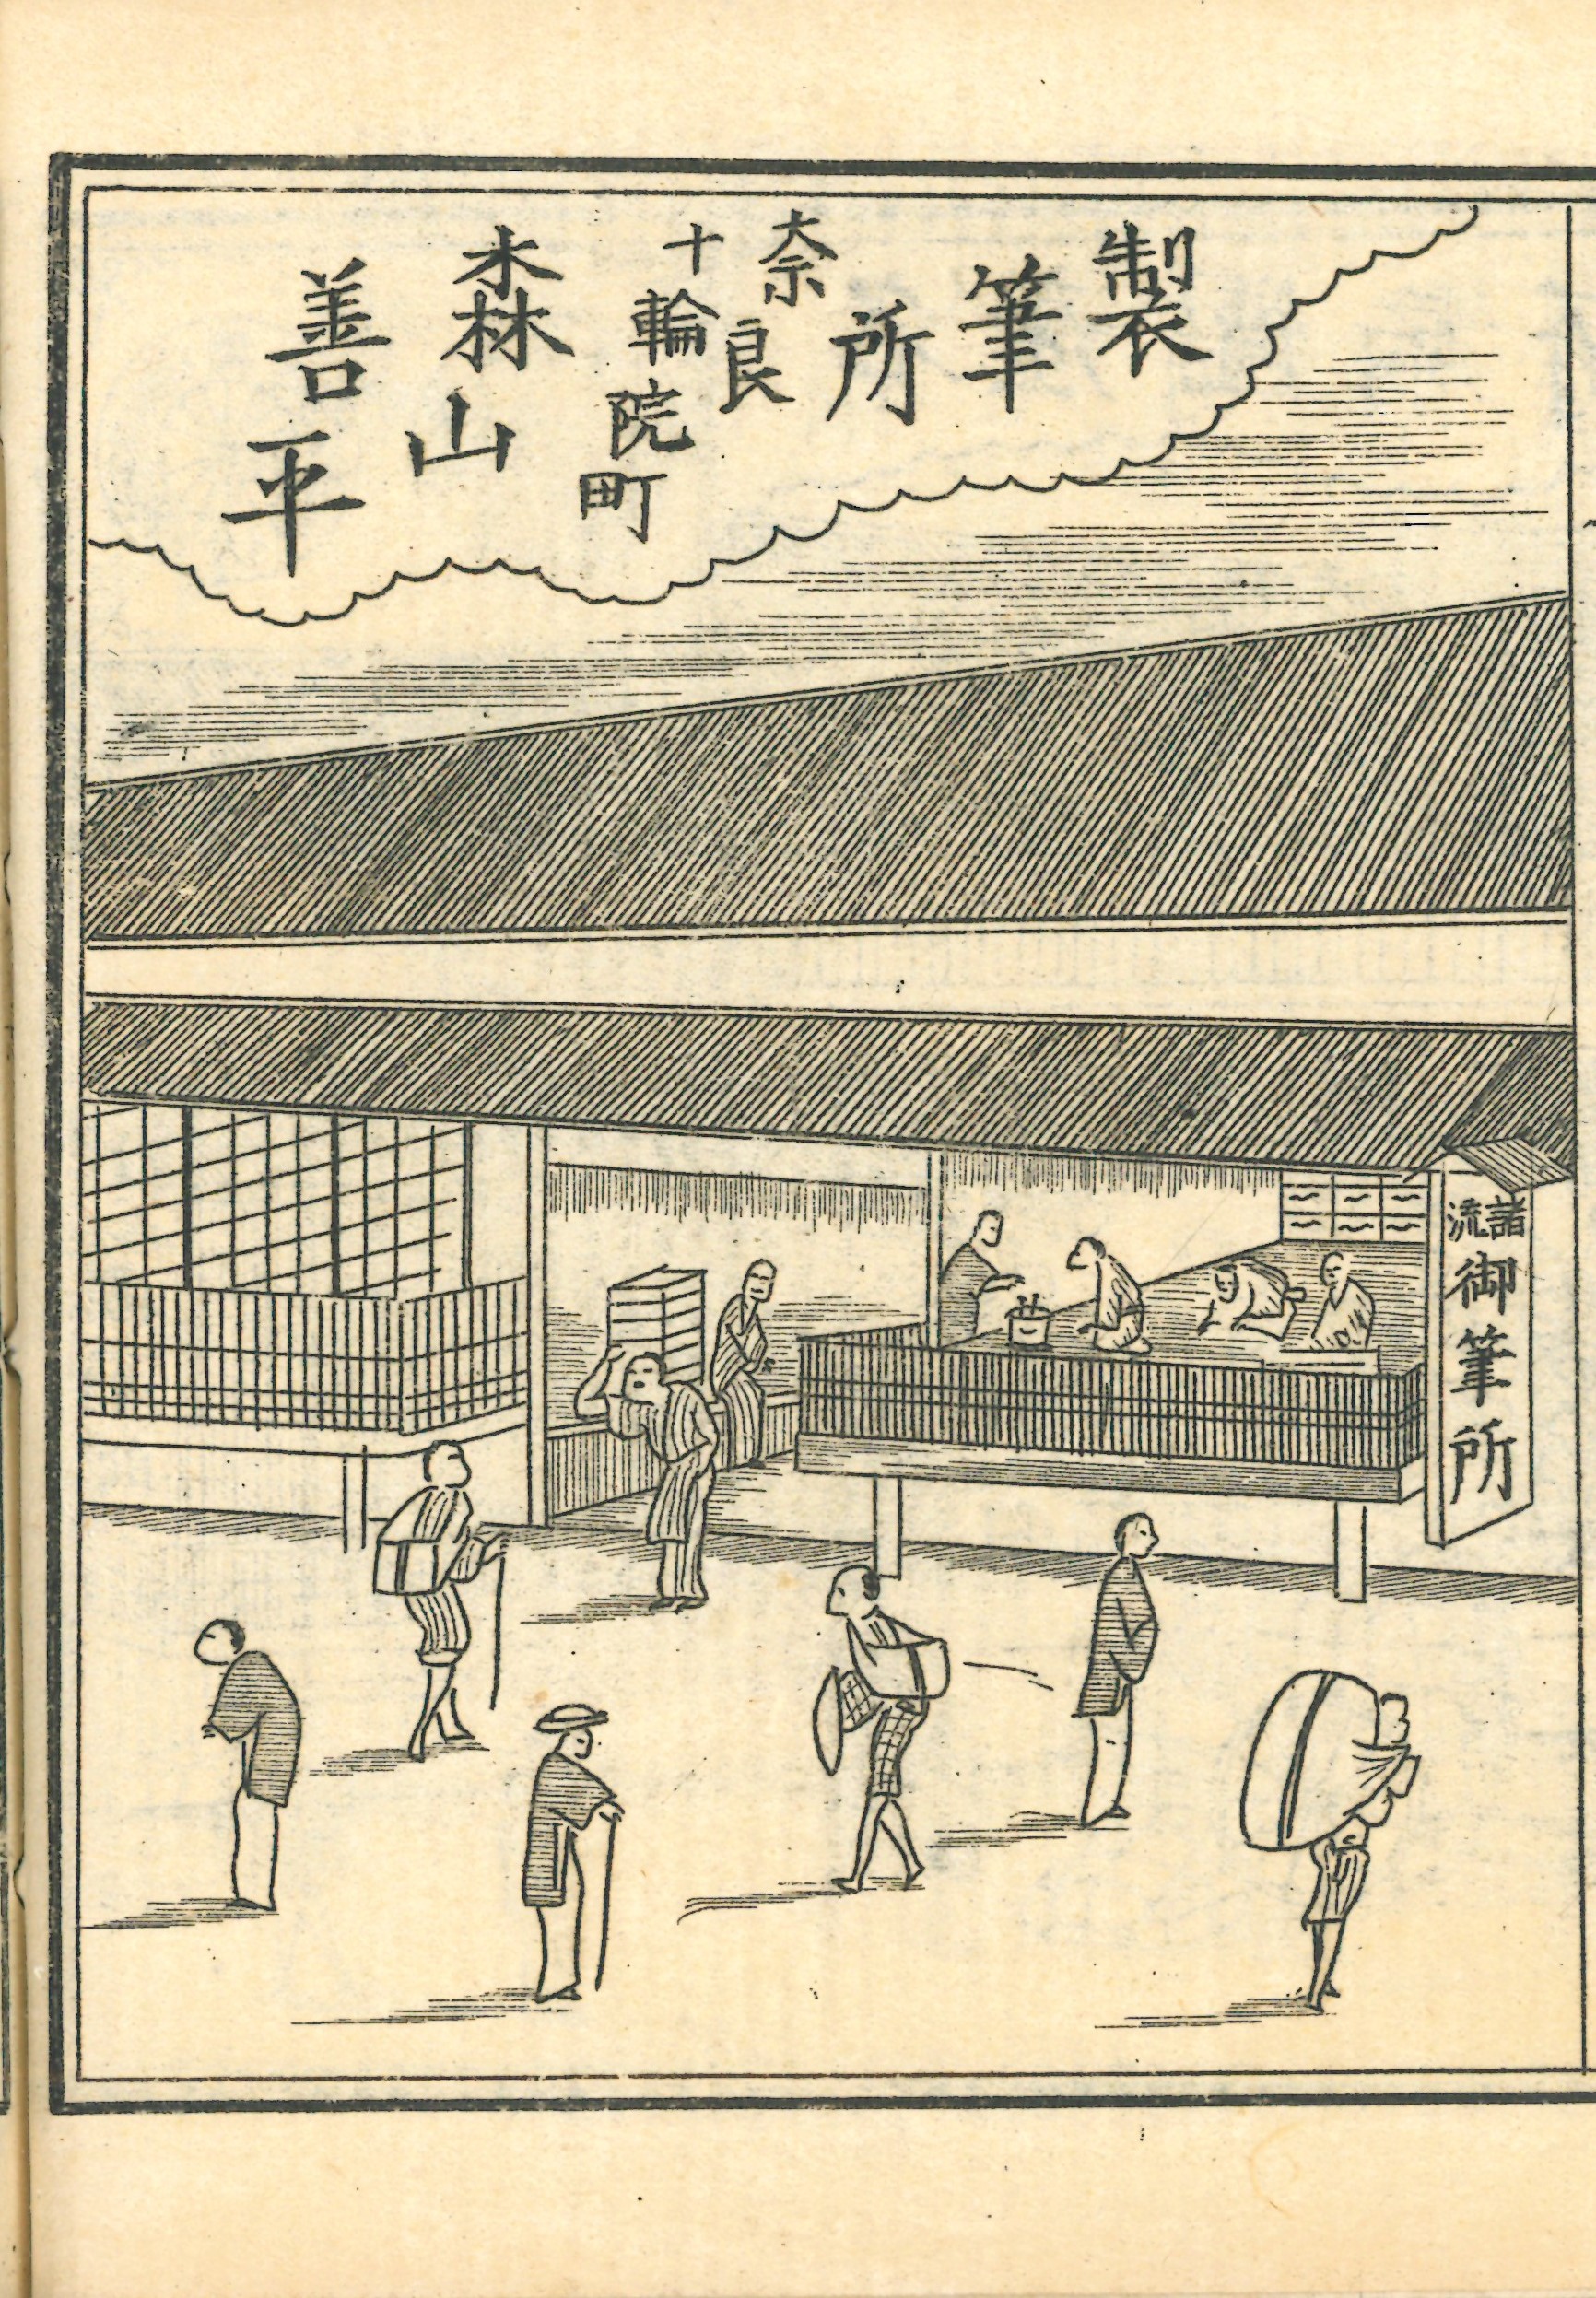 製筆所
奈良
十輪院町
森山
善平
諸流
御筆所